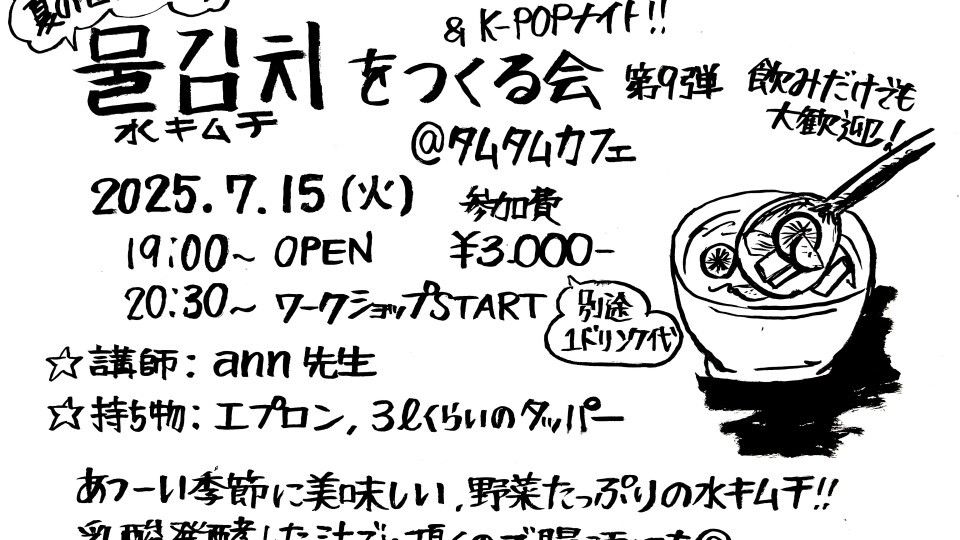 夏の
& K-POPナイト!!
물김치をつくる会 第9弾
水キムチ
飲みだけでも
大歓迎!
@タムタムカフェ
2025.7.15(火)
参加費
19:00~ OPEN ¥3.000-
20:30~ ワークショップSTART
別途
1ドリンク代
☆講師: ann先生
☆持ち物: エプロン, 3ℓくらいのタッパー
あつーい季節に美味しい,野菜たっぷりの水キムチ!!
乳酸発酵した汁ごと頂くので腸